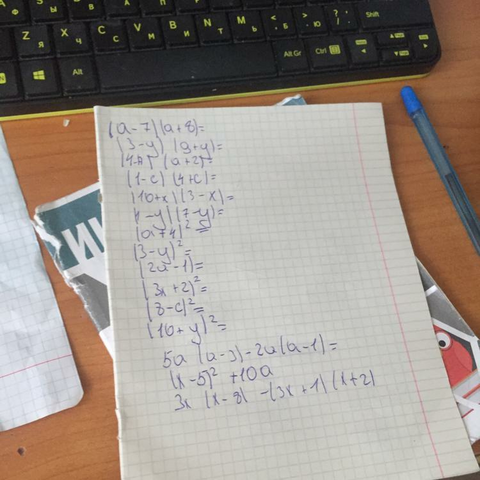 Shift
Alt Gr
Ctrl
(a-7)(a+8)=
(3-y) (9+y)=
(a+2)=
(1-c) (4+c)=
(10+x)(3-x)=
(4-y)(7-y)=
(a+4)²=
(3-y)²=
(2a-1)=
(3x+2)²=
(8-c)²=
(10+y)²=
5a (a-3)-2a(a-1)=
(x-5)² +10a
3x (x-8) -(3x+1)(x+2)